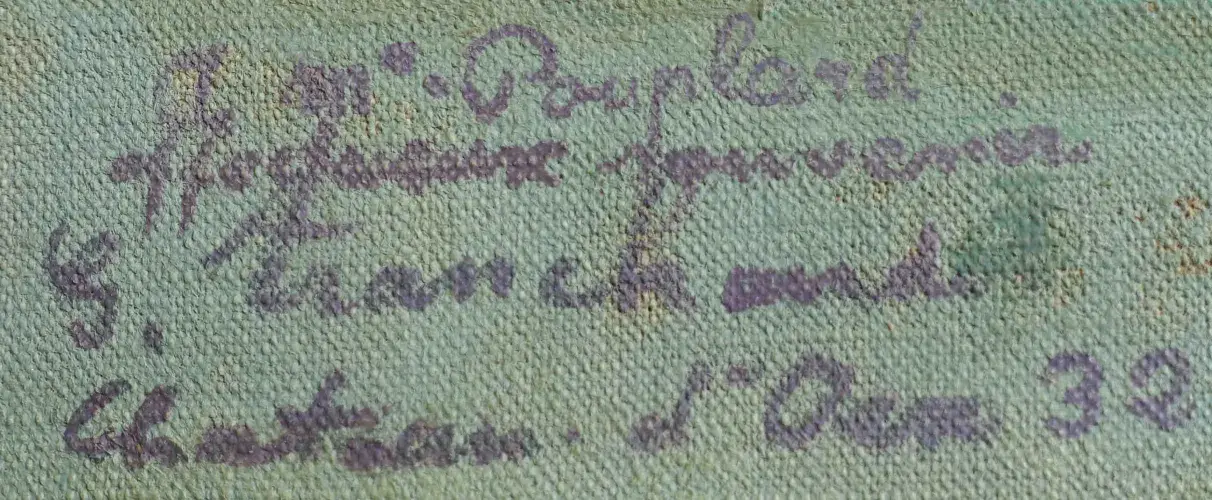 A Mr. Pouplard
affectueux souvenir.
G. Tranchand
Chateau. d'Oex 32